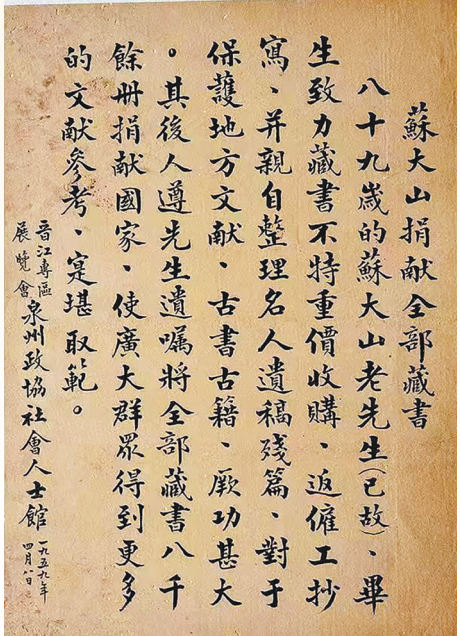 蘇大山捐献全部藏書
八十九歲的蘇大山老先生(已故)、畢
生致力藏書不特重價收購、返僱工抄
寫、并親自整理名人遺稿殘篇、對于
保護地方文献、古書古籍、厥功甚大
。其後人遵先生遺囑將全部藏書八千
餘册捐献國家、使廣大群眾得到更多
的文献參考、寔堪取範。
晋江專區
展覽會
泉州政協社會人士館
一九五九年
四月八日